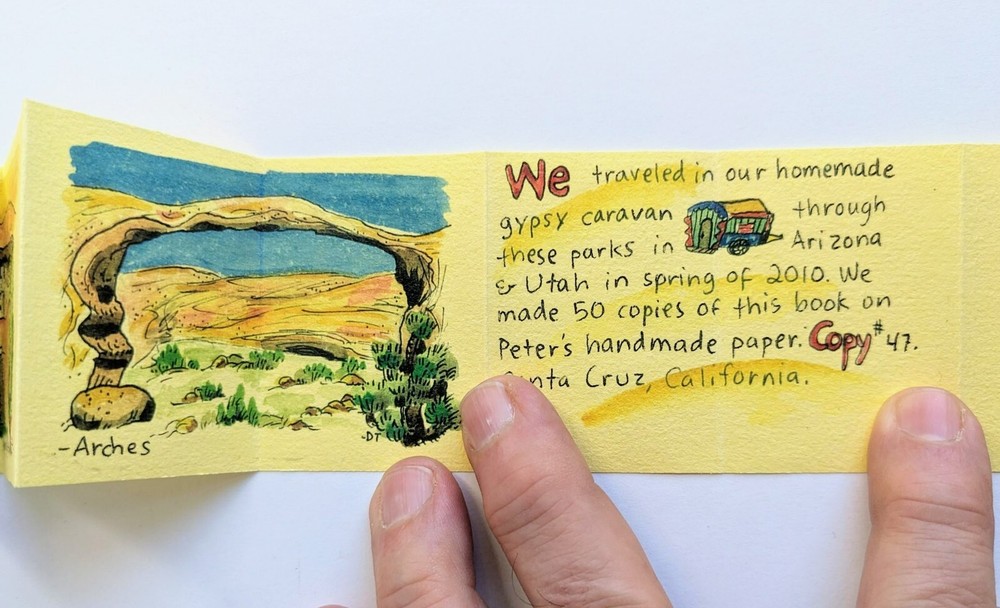 -Arches
-DT
We traveled in our homemade
gypsy caravan through
these parks in Arizona
& Utah in spring of 2010. We
made 50 copies of this book on
Peter's handmade paper. Copy #47.
Santa Cruz, California.